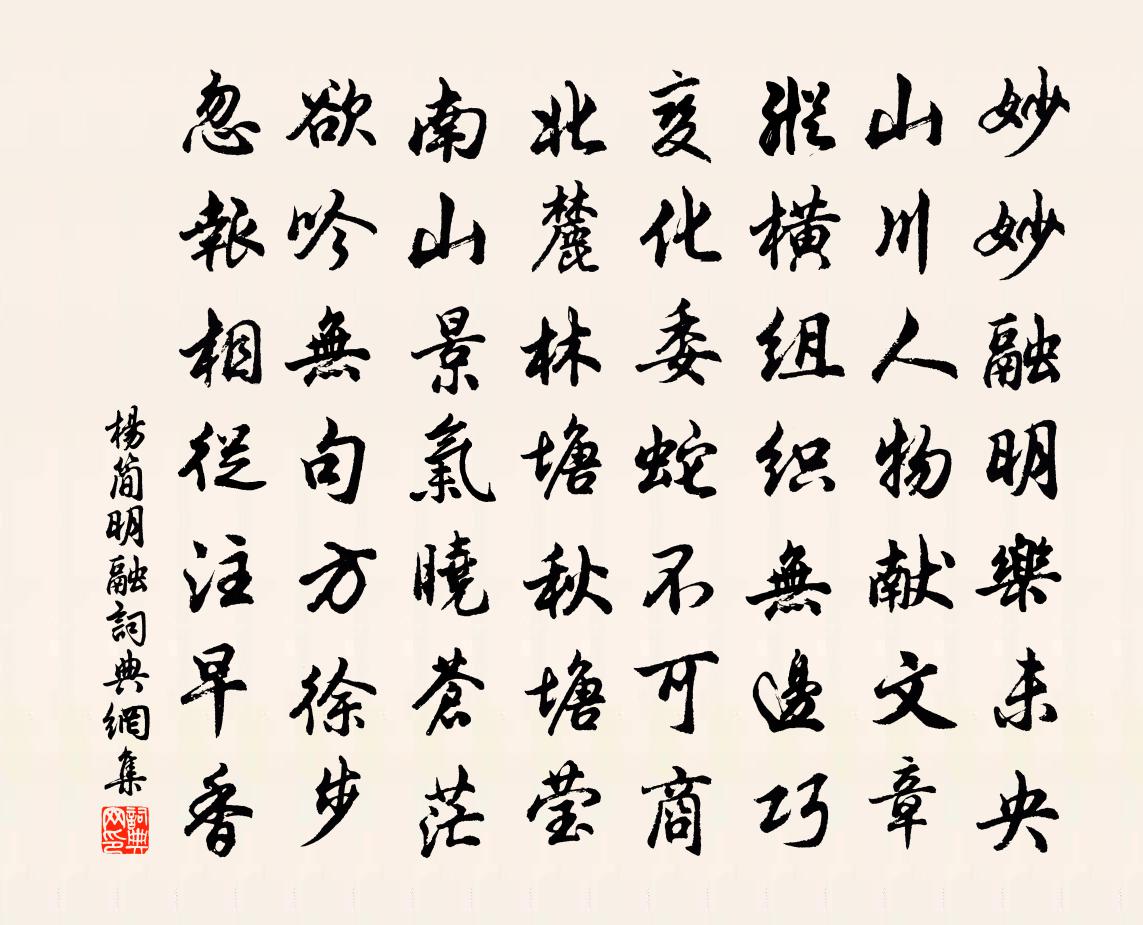 妙妙融明樂未央
山川人物献文章
縱橫組织無邊巧
変化委蛇不可商
北麓林塘秋塘莹
南山景氣曉蒼茫
欲吟無句方徐步
忽報相從注早香
楊簡明融詞典網集
詞典网印